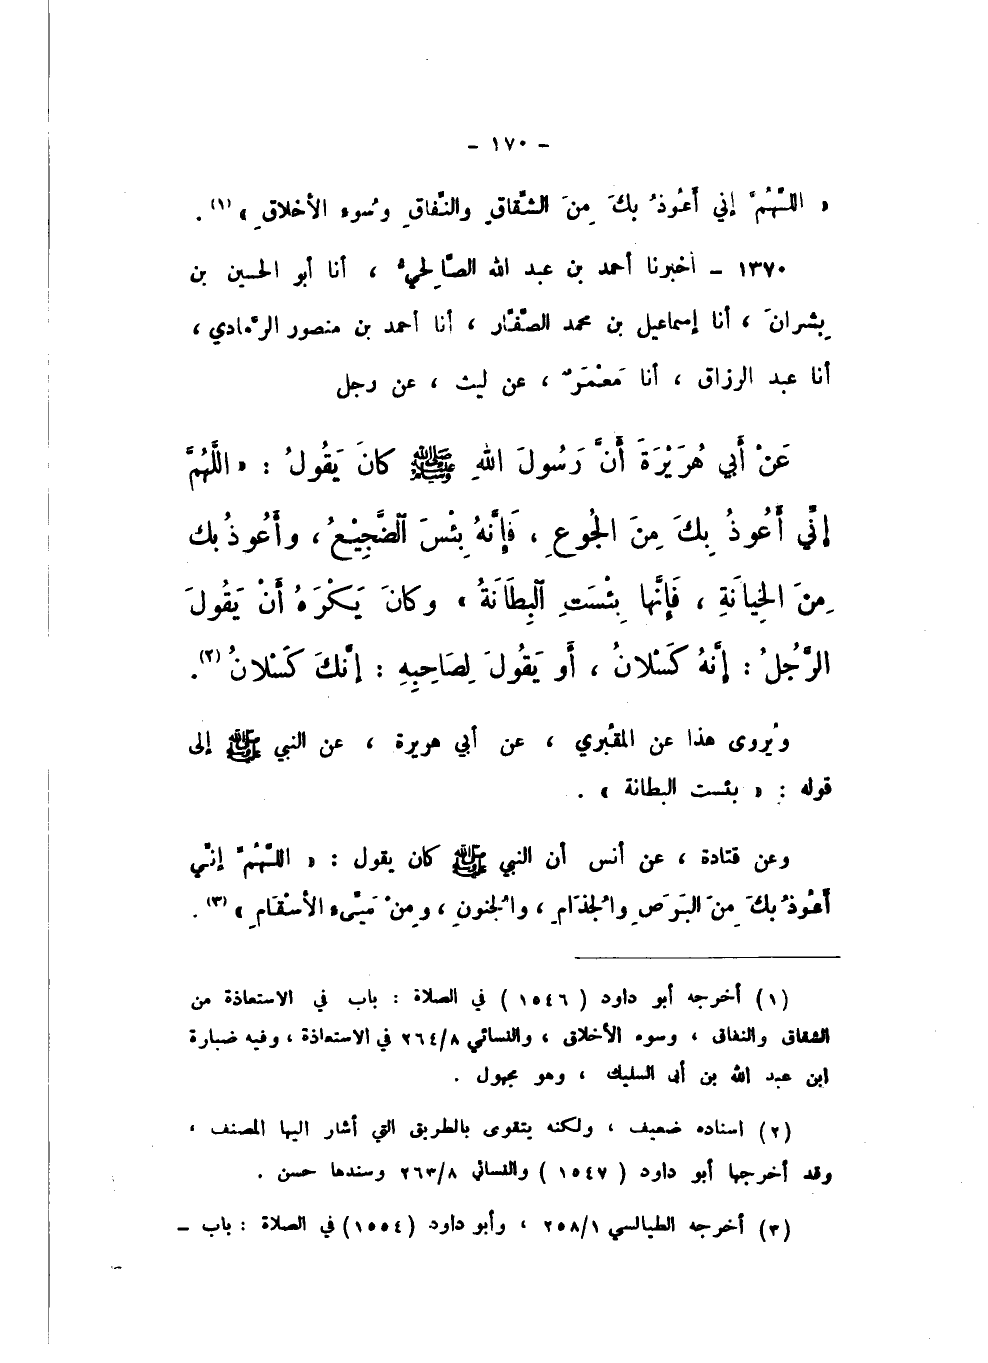 - ١٧٠ -
« اللَّهُمَّ إني أَعُوذُ بكَ مِنَ الشِّقاقِ والنِّفاقِ وسُوءِ الأخلاقِ » (١) .
١٣٧٠ - أخبرنا أحمد بن عبد الله الصَّالحيُّ ، أنا أبو الحسين بن
بِشرانَ ، أنا إسماعيل بن محمد الصَّفَّار ، أنا أحمد بن منصور الرَّمادي ،
أنا عبد الرزاق ، أنا مَعْمَرٌ ، عن ليث ، عن رجل
عَنْ أَبي هُرَيْرَةَ أَنَّ رَسُولَ اللهِ ﷺ كانَ يَقُولُ : « اللَّهُمَّ
إنِّي أَعُوذُ بِكَ مِنَ الجُوعِ ، فَإنَّهُ بِئْسَ الضَّجِيْعُ ، وأَعُوذُ بك
مِنَ الخِيانَةِ ، فَإنَّها بِئْسَتِ البِطَانَةُ » وكانَ يَكْرَهُ أَنْ يَقُولَ
الرَّجُلُ : إنَّهُ كَسْلانُ ، أَو يَقُولَ لِصَاحِبِهِ : إنَّكَ كَسْلانُ (٢) .
ويُروى هذا عن المقبُري ، عن أبي هريرة ، عن النبي ﷺ إلى
قوله : « بئست البطانة » .
وعن قتادة ، عن أنس أن النبي ﷺ كان يقول : « اللَّهُمَّ إنِّي
أَعُوذُ بكَ مِنَ البَرَصِ والجُذَامِ ، والجُنونِ ، ومِنْ سَيِّىءِ الأسْقَامِ » (٣) .
(١) أخرجه أبو داود ( ١٥٤٦ ) في الصلاة : باب في الاستعاذة من
الشقاق والنفاق ، وسوء الأخلاق ، والنسائي ٢٦٤/٨ في الاستعاذة ، وفيه ضبارة
ابن عبد الله بن أبى السليك ، وهو مجهول .
(٢) اسناده ضعيف ، ولكنه يتقوى بالطريق التي أشار اليها المصنف ،
وقد أخرجها أبو داود ( ١٥٤٧ ) والنسائي ٢٦٣/٨ وسندها حسن .
(٣) أخرجه الطيالسي ٢٥٨/١ ، وأبو داود (١٥٥٤) في الصلاة : باب -